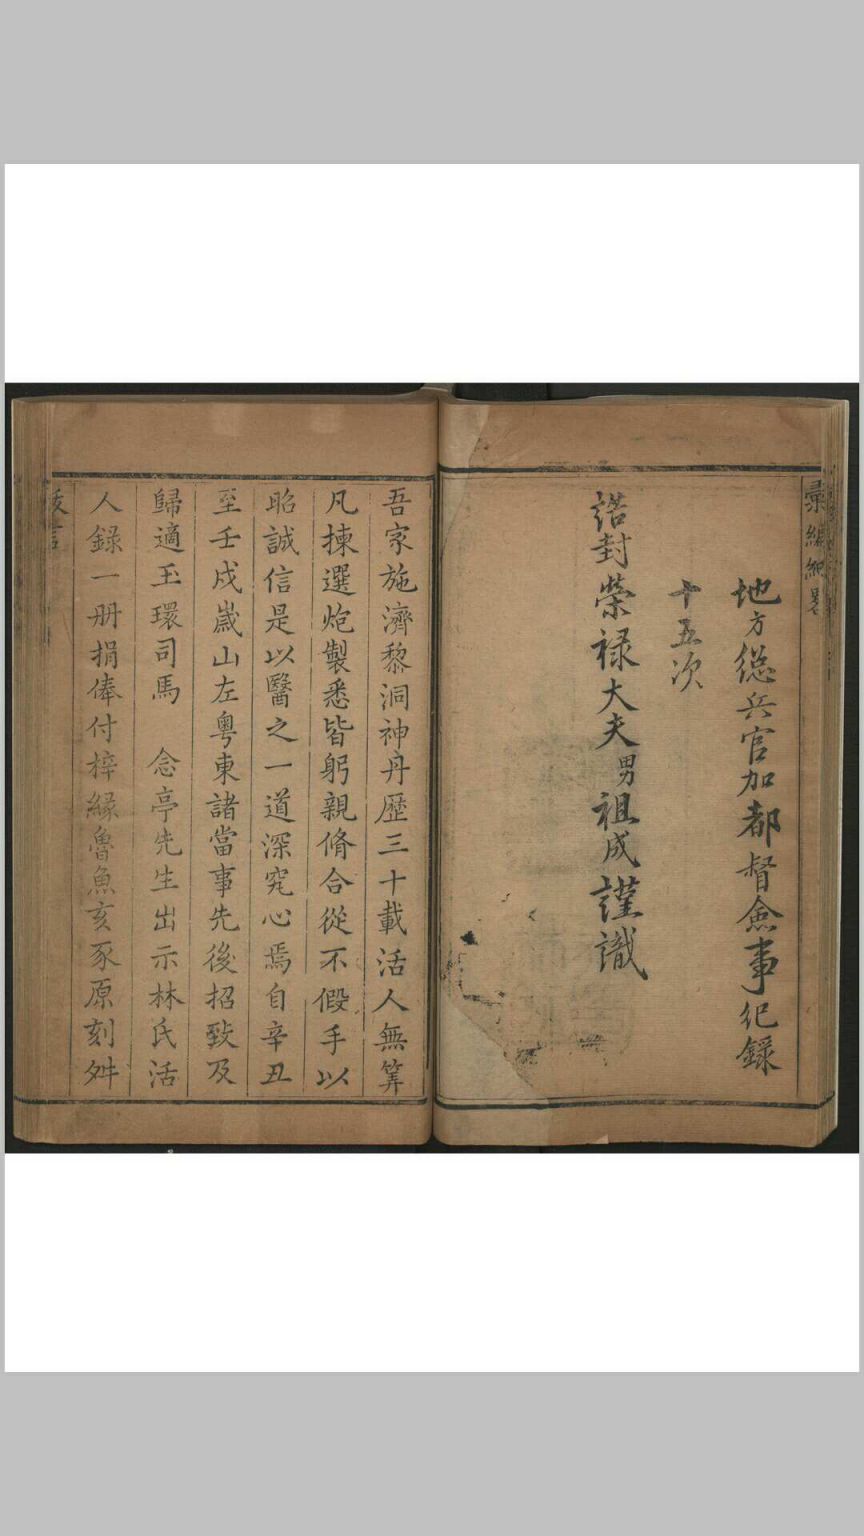 彙編紀畧
地方総兵官加都督僉事紀錄
十五次
誥封榮禄大夫男祖成謹識
吾家施濟黎洞神丹歷三十載活人無筭
凡揀選炮製悉皆躬親脩合從不假手以
昭誠信是以醫之一道深究心焉自辛丑
至壬戌嵗山左粵東諸當事先後招致及
歸適玉環司馬 念亭先生出示林氏活
人錄一册捐俸付梓緣魯魚亥豕原刻舛